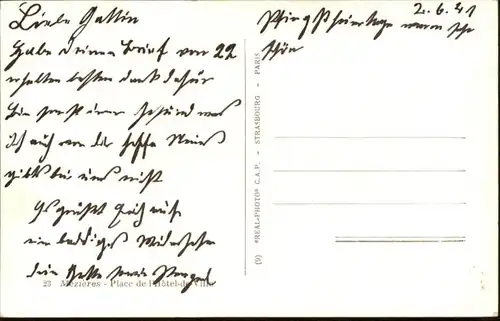 Liebe Gattin
Habe deinen Brief von 22
erhalten besten dank dafür
bin sonst immer Gesund was
Ich auch von dir hoffe Neues
gibts bei uns nicht
Es grüßt Euch auf
ein baldiges Wiedersehen
dein Gatte
2.6.41
Pfingstfeiertage waren sehr
schön
23 Mézières - Place de l'Hôtel-de-Ville
(9) "REAL-PHOTO" C.A.P. - STRASBOURG - PARIS